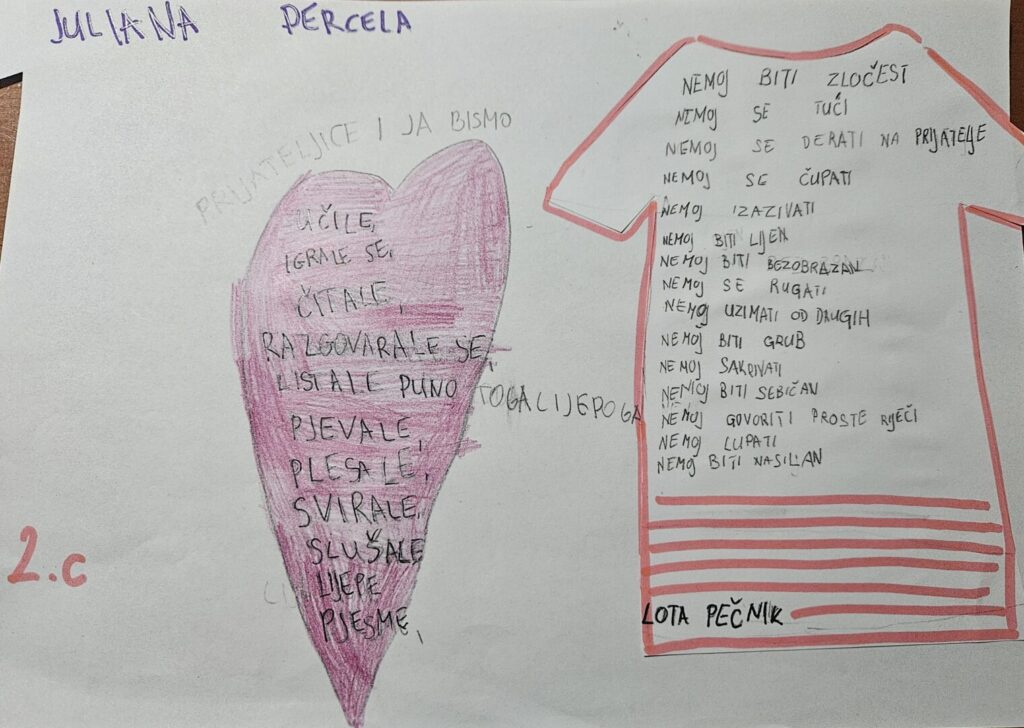 JULIANA PERCELA
PRIJATELJICE I JA BISMO
UČILE,
IGRALE SE,
ČITALE,
RAZGOVARALE SE,
LISTALE PUNO TOGA LIJEPOGA
PJEVALE,
PLESALE,
SVIRALE,
SLUŠALE
LIJEPE
PJESME,
2.c
NEMOJ BITI ZLOČEST
NEMOJ SE TUĆI
NEMOJ SE DERATI NA PRIJATELJE
NEMOJ SE ČUPATI
NEMOJ IZAZIVATI
NEMOJ BITI LIJEN
NEMOJ BITI BEZOBRAZAN
NEMOJ SE RUGATI
NEMOJ UZIMATI OD DRUGIH
NEMOJ BITI GRUB
NEMOJ SAKRIVATI
NEMOJ BITI SEBIČAN
NEMOJ GOVORITI PROSTE RJEČI
NEMOJ LUPATI
NEMOJ BITI NASILAN
LOTA PEČNIK